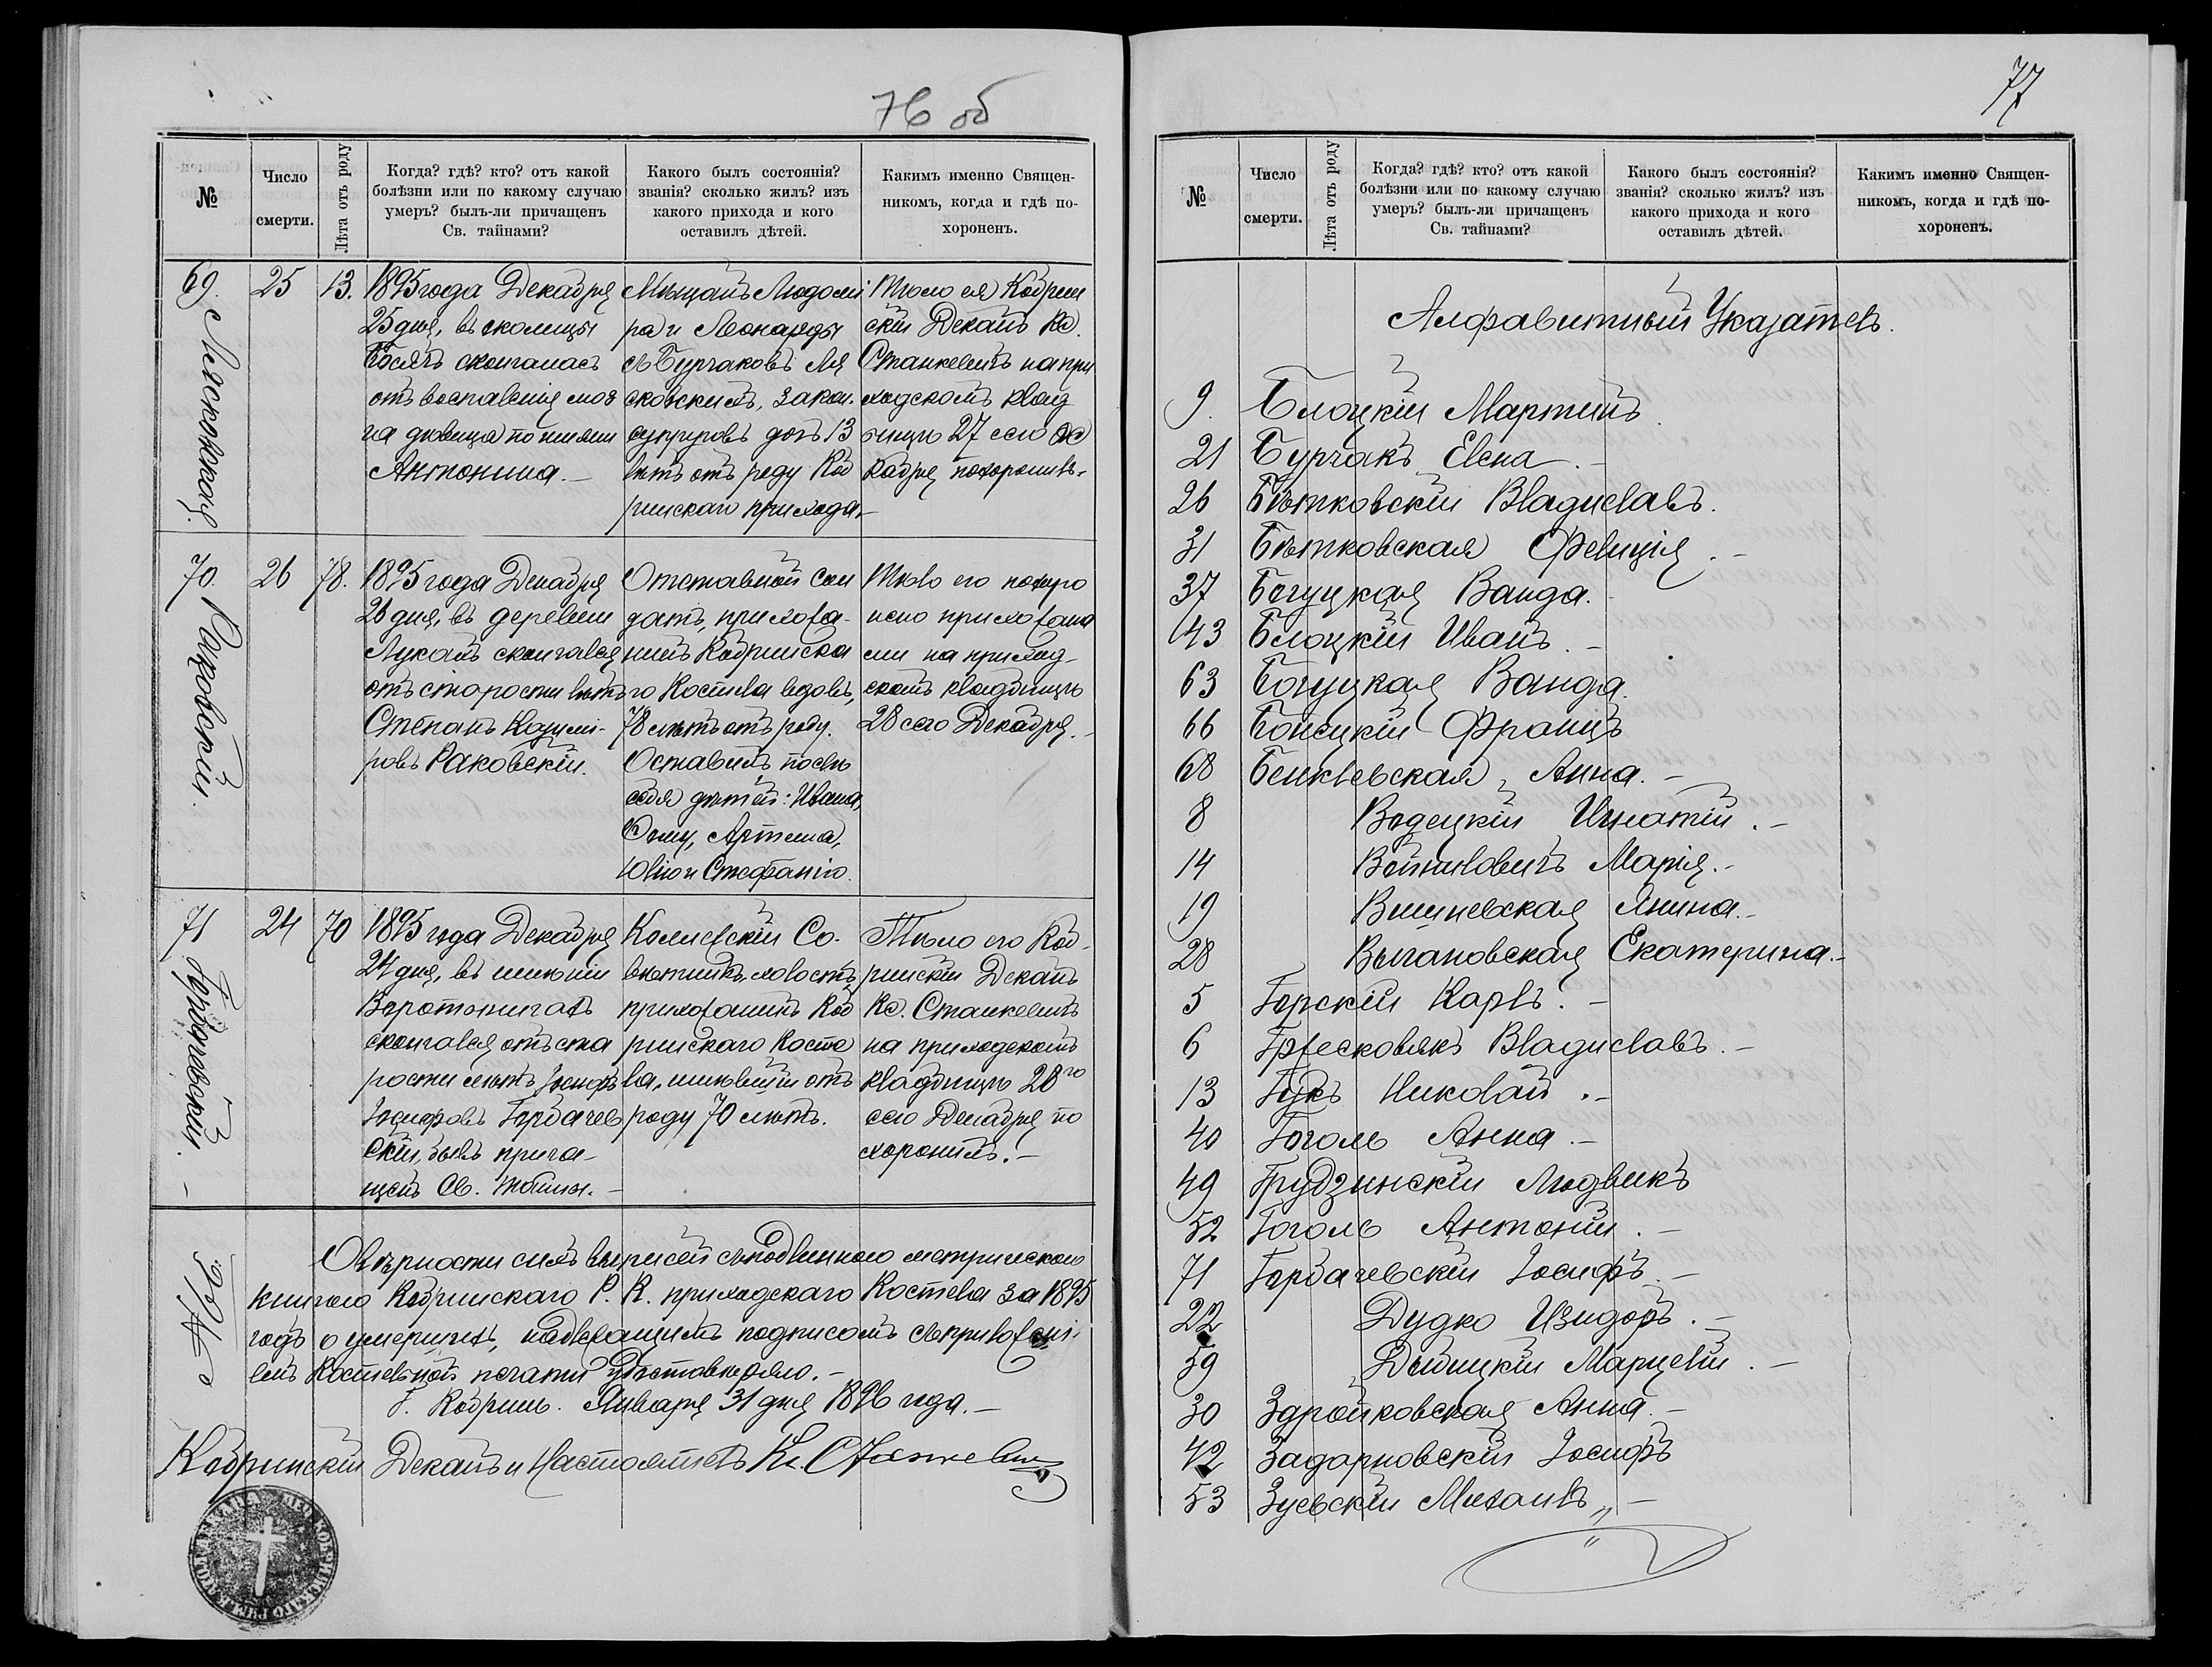 76 об
№
Число смерти.
Лѣта отъ роду
Когда? гдѣ? кто? отъ какой
болѣзни или по какому случаю
умеръ? былъ-ли причащенъ
Св. тайнами?
Какого былъ состоянія?
званія? сколько жилъ? изъ
какого прихода и кого
оставилъ дѣтей.
Какимъ именно Священ-
никомъ, когда и гдѣ по-
хороненъ.
69.
25
13.
1895 года Декабря
25 дня, въ околицы
скончалась
отъ воспаленія моз
га дѣвица по имени
Антонина.—
Мѣщанъ Людоми
ра и Леонарды
съ Бурчаковъ Ля
сковскихъ, закон.
супруговъ дочь 13
лѣтъ отъ роду Коб
ринскаго прихода.—
Тѣло ея Кобрин
скій Деканъ Кс.
Станкевичъ на при
ходскомъ клад
бищѣ 27 сего Де
кабря похоронилъ.
70. Раковскій.
26
78.
1895 года Декабря
26 дня, въ деревни
Лукахъ скончался
отъ старости лѣтъ
Степанъ Казимі-
ровъ Раковскій.
Отставной сол
датъ, прихожа-
нинъ Кобринска
го Костела вдовъ,
78 лѣтъ отъ роду.
Оставилъ послѣ
себя дѣтей: Ивана,
Фому, Артема,
Юлію и Стефанію.
Тѣло его похоро
нено прихожана
ми на приход-
скомъ кладбищѣ
28 сего Декабря.—
71 Горбачевскій.—
24
70
1895 года Декабря
24 дня, въ имѣніи
скончался отъ ста
рости лѣтъ Іосифъ
Іосифовъ Горбачев
скій, былъ прича-
щенъ Св. тайнъ.—
Коллежскій Со-
вѣтникъ, холостъ,
прихожанинъ Коб
ринскаго Косте
ла, имѣвшій отъ
роду 70 лѣтъ.
Тѣло его Коб-
ринскій Деканъ
Кс. Станкевичъ
на приходскомъ
кладбищѣ 28го
сего Декабря по
хоронилъ.—
О вѣрности сихъ выписей съ подлинною метрическою
книгою Кобринскаго Р. К. приходскаго Костела за 1895
годъ о умершихъ, надлежащимъ подписомъ съ приложені-
емъ Костельной печати удостовѣряю.—
Г. Кобринъ. Января 31 дня 1896 года.—
Кобринскій Деканъ и Настоятель Кс. Станкевичъ
77
№
Число смерти.
Лѣта отъ роду
Когда? гдѣ? кто? отъ какой
болѣзни или по какому случаю
умеръ? былъ-ли причащенъ
Св. тайнами?
Какого былъ состоянія?
званія? сколько жилъ? изъ
какого прихода и кого
оставилъ дѣтей.
Какимъ именно Священ-
никомъ, когда и гдѣ по-
хороненъ.
Алфавитный Указатель.
9. Блоцкій Мартинъ.
21 Бурчакъ Елена.—
26 Бѣтковскій Владиславъ.
31 Бѣтковская Фелиція.—
37 Богуцкая Ванда.
43 Блоцкій Иванъ.—
63 Богуцкая Ванда.
66 Бонецкій Францъ
68 Бенклевская Анна.—
8 Водецкій Игнатій.—
14 Войниловичъ Марія.—
19 Вишневская Янина.—
28 Выгановская Екатерина.—
5 Горскій Карлъ.—
6 Гржесковякъ Владиславъ.—
13 Гукъ Николай.—
40 Гоголь Анна.—
49 Грудзинскій Людвикъ
52 Гоголь Антоній.—
71 Горбачевскій Іосифъ.—
22 Дудко Изидоръ.—
59 Дыбицкій Марцелій.—
30 Здройковская Анна.—
42 Задарновскій Іосифъ
53 Зуевскій Михаилъ „—